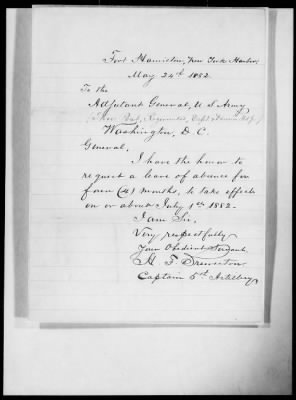 Fort Hamilton, New York Harbor,
May 24th 1882.
To the
Adjutant General, U S Army
(Thro' Bat, Regimental,
Washington, D C
General,
I have the honor to
request a leave of absence for
four (4) months, to take effect
on or about July 1st 1882.
I am Sir,
Very respectfully
Your Obedient Servant,
Captain 5th Artillery